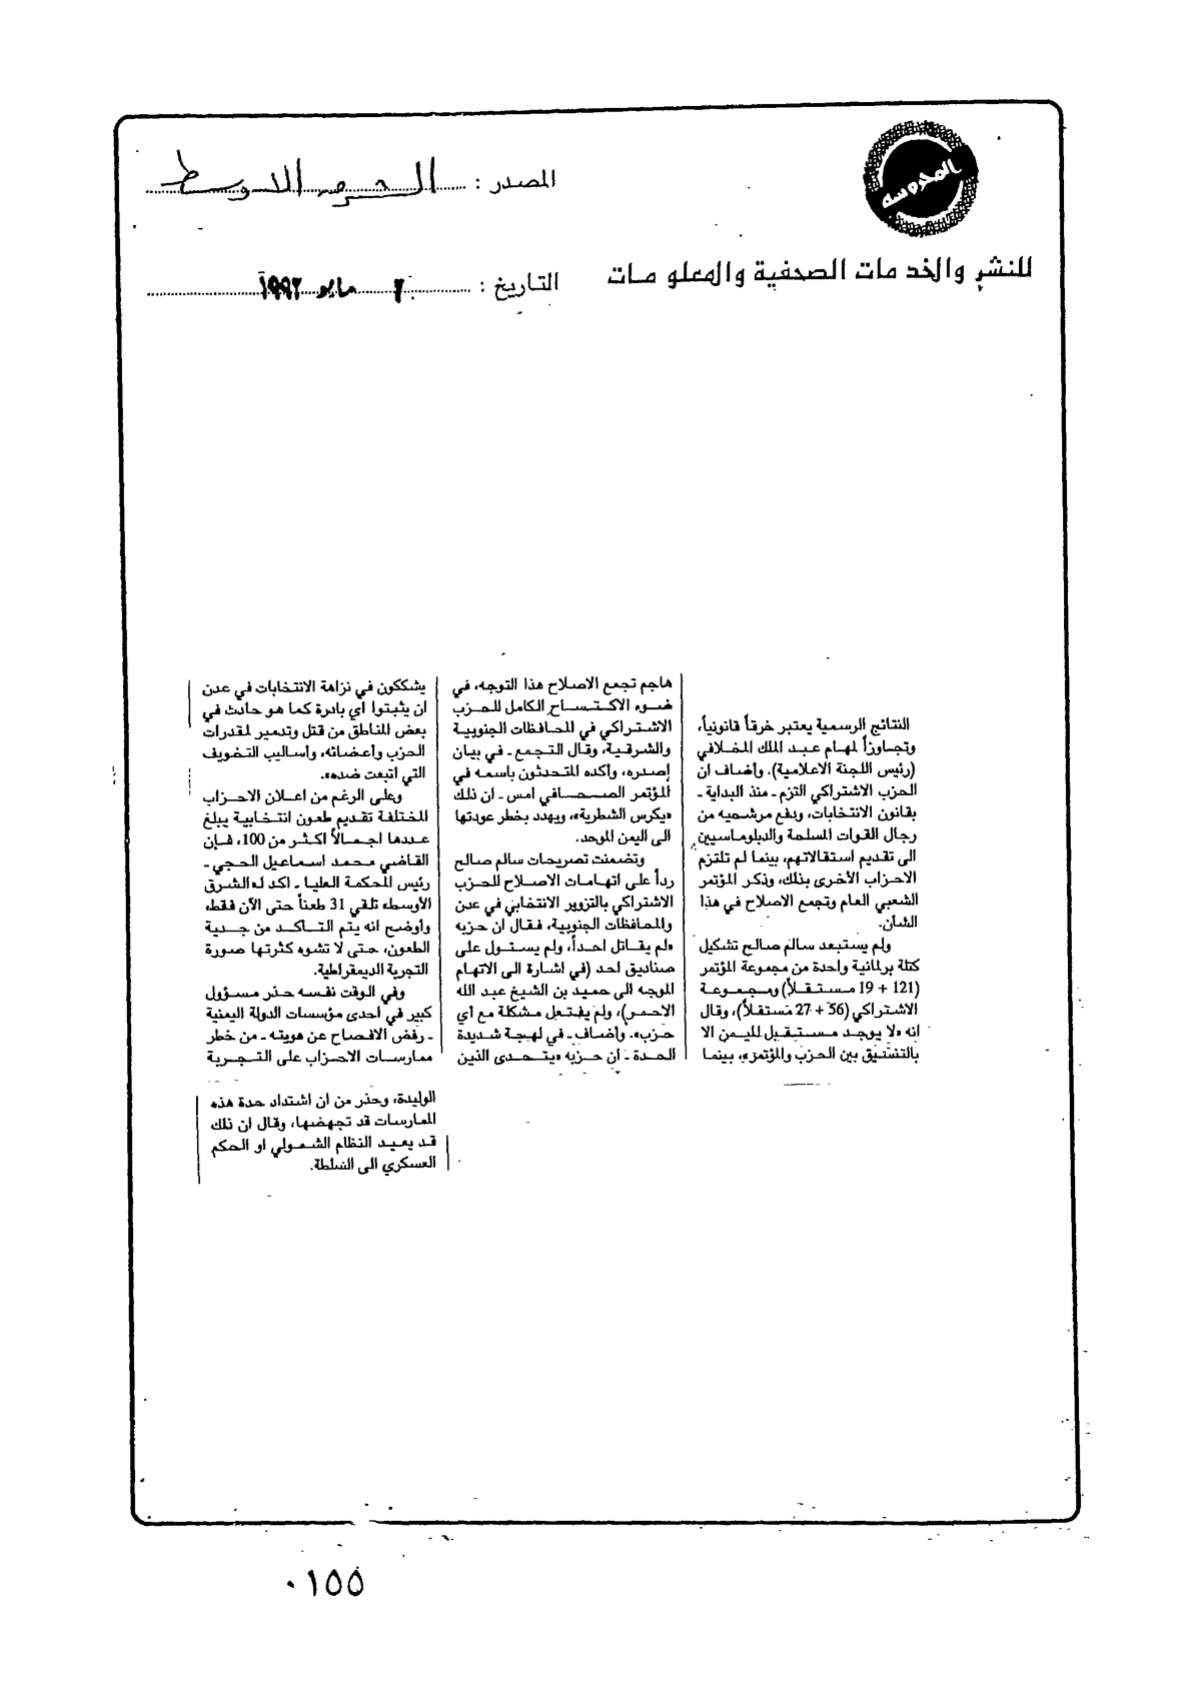 المحروسه
المصدر : الشرق الاوسط
للنشر والخدمات الصحفية والمعلومات
التاريخ : ٢ مايو ١٩٩٣
النتائج الرسمية يعتبر خرقاً قانونياً،
وتجاوزاً لمهام عبد الملك المخلافي
(رئيس اللجنة الاعلامية). وأضاف ان
الحزب الاشتراكي التزم - منذ البداية -
بقانون الانتخابات، ودفع مرشحيه من
رجال القوات المسلحة والدبلوماسيين
الى تقديم استقالاتهم، بينما لم تلتزم
الاحزاب الأخرى بذلك، وذكر المؤتمر
الشعبي العام وتجمع الاصلاح في هذا
الشأن.
ولم يستبعد سالم صالح تشكيل
كتلة برلمانية واحدة من مجموعة المؤتمر
(121 + 19 مستقلاً) ومجموعة
الاشتراكي (56 + 27 مستقلاً)، وقال
انه «لا يوجد مستقبل لليمن الا
بالتنسيق بين الحزب والمؤتمر»، بينما
هاجم تجمع الاصلاح هذا التوجه، في
ضوء الاكتساح الكامل للحزب
الاشتراكي في المحافظات الجنوبية
والشرقية، وقال التجمع - في بيان
إصدره، وأكده المتحدثون باسمه في
المؤتمر الصحافي امس - ان ذلك
«يكرس الشطرية»، ويهدد بخطر عودتها
الى اليمن الموحد.
وتضمنت تصريحات سالم صالح
رداً على اتهامات الاصلاح للحزب
الاشتراكي بالتزوير الانتخابي في عدن
والمحافظات الجنوبية، فقال ان حزبه
«لم يقاتل احداً، ولم يستول على
صناديق احد (في اشارة الى الاتهام
الموجه الى حميد بن الشيخ عبد الله
الاحمر)، ولم يفتعل مشكلة مع أي
حزب». وأضاف - في لهجة شديدة
الحدة - ان حزبه «يتحدى الذين
يشككون في نزاهة الانتخابات في عدن
ان يثبتوا اي بادرة كما هو حادث في
بعض المناطق من قتل وتدمير لمقدرات
الحزب وأعضائه، وأساليب التخويف
التي اتبعت ضده».
وعلى الرغم من اعلان الاحزاب
المختلفة تقديم طعون انتخابية يبلغ
عددها اجمالاً اكثر من 100، فإن
القاضي محمد اسماعيل الحجي -
رئيس المحكمة العليا - اكد لـ«الشرق
الأوسط» تلقي 31 طعناً حتى الآن فقط،
وأوضح انه يتم التأكد من جدية
الطعون، حتى لا تشوه كثرتها صورة
التجربة الديمقراطية.
وفي الوقت نفسه حذر مسؤول
كبير في احدى مؤسسات الدولة اليمنية
- رفض الافصاح عن هويته - من خطر
ممارسات الاحزاب على التجربة
الوليدة، وحذر من ان اشتداد حدة هذه
الممارسات قد تجهضها، وقال ان ذلك
قد يعيد النظام الشمولي او الحكم
العسكري الى السلطة.
٠١٥٥